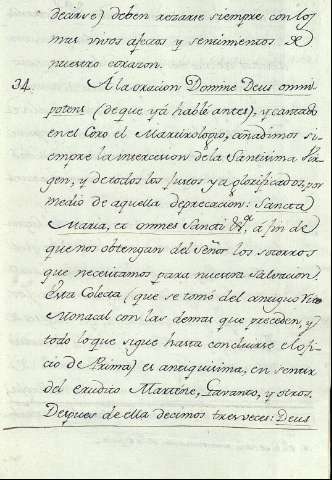 decirse) deben rezarse siempre con los
mas vivos afectos y sentimientos de
nuestro corazon.
34. A la oracion Domine Deus omni
potens (de que yá hablé antes), y cantado
en el Coro el Martirologio, añadimos si-
empre la intercesion de la Santisima Vir-
gen, y de todos los Justos ya glorificados, por
medio de aquella deprecacion: Sancta
Maria, et omnes Sancti &ª, a fin de
que nos obtengan del Señor los socorros
que necesitamos para nuestra Salvacion.
Esta Colecta (que se tomó del antiguo Rito
Monacal con las demas que preceden, y
todo lo que sigue hasta concluirse el ofi-
cio de Prima) es antiquisima, en sentir
del erudito Marténe, Gavanto, y otros.
Despues de ella decimos tres veces: Deus